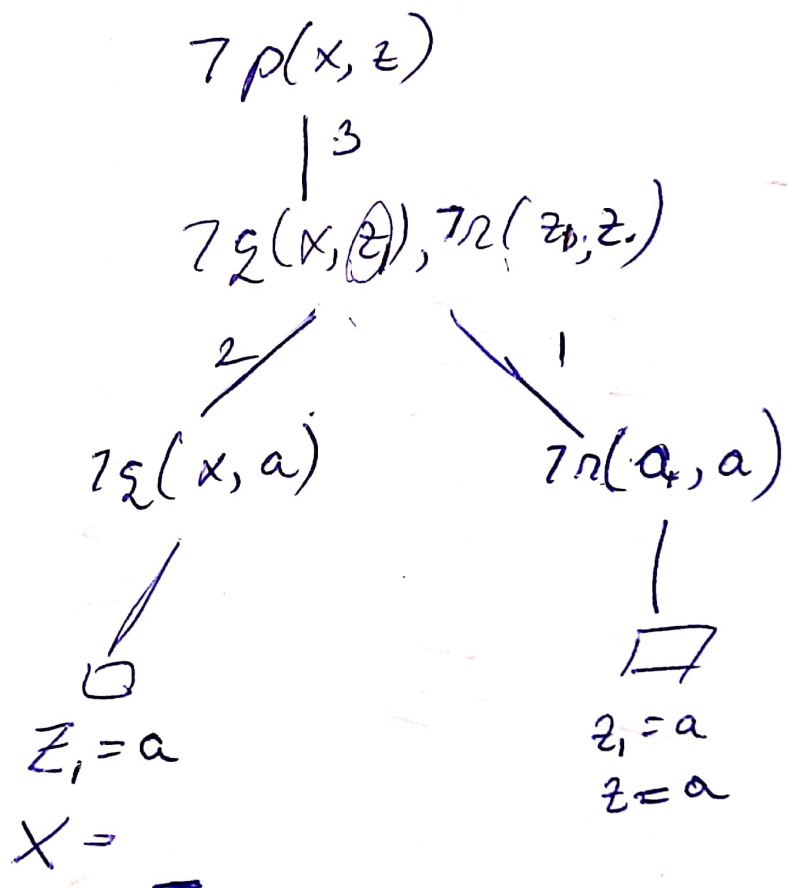 ¬p(x, z)
3
¬q(x, z₁), ¬r(z₁, z)
2
1
¬q(x, a)
¬r(a, a)
Z₁ = a
X =
z₁ = a
z = a